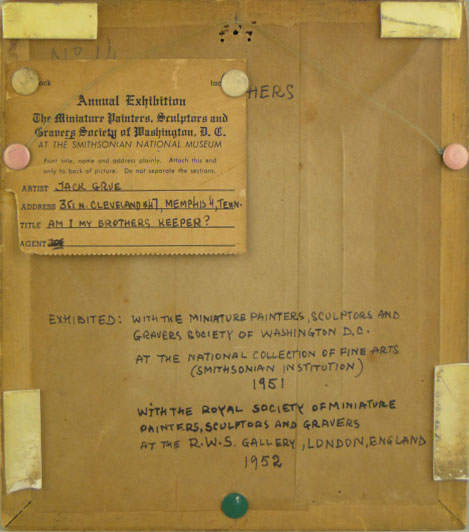 No 14
HERS
Annual Exhibition
The Miniature Painters, Sculptors and
Gravers Society of Washington, D. C.
AT THE SMITHSONIAN NATIONAL MUSEUM
Print title, name and address plainly. Attach this end
only to back of picture. Do not separate the sections.
ARTIST JACK GRUE
ADDRESS 351 N. CLEVELAND #47, MEMPHIS 4, TENN.
TITLE AM I MY BROTHERS KEEPER?
AGENT
EXHIBITED: WITH THE MINIATURE PAINTERS, SCULPTORS AND
GRAVERS SOCIETY OF WASHINGTON D.C.
AT THE NATIONAL COLLECTION OF FINE ARTS
(SMITHSONIAN INSTITUTION)
1951
WITH THE ROYAL SOCIETY OF MINIATURE
PAINTERS, SCULPTORS AND GRAVERS
AT THE R.W.S. GALLERY, LONDON, ENGLAND
1952